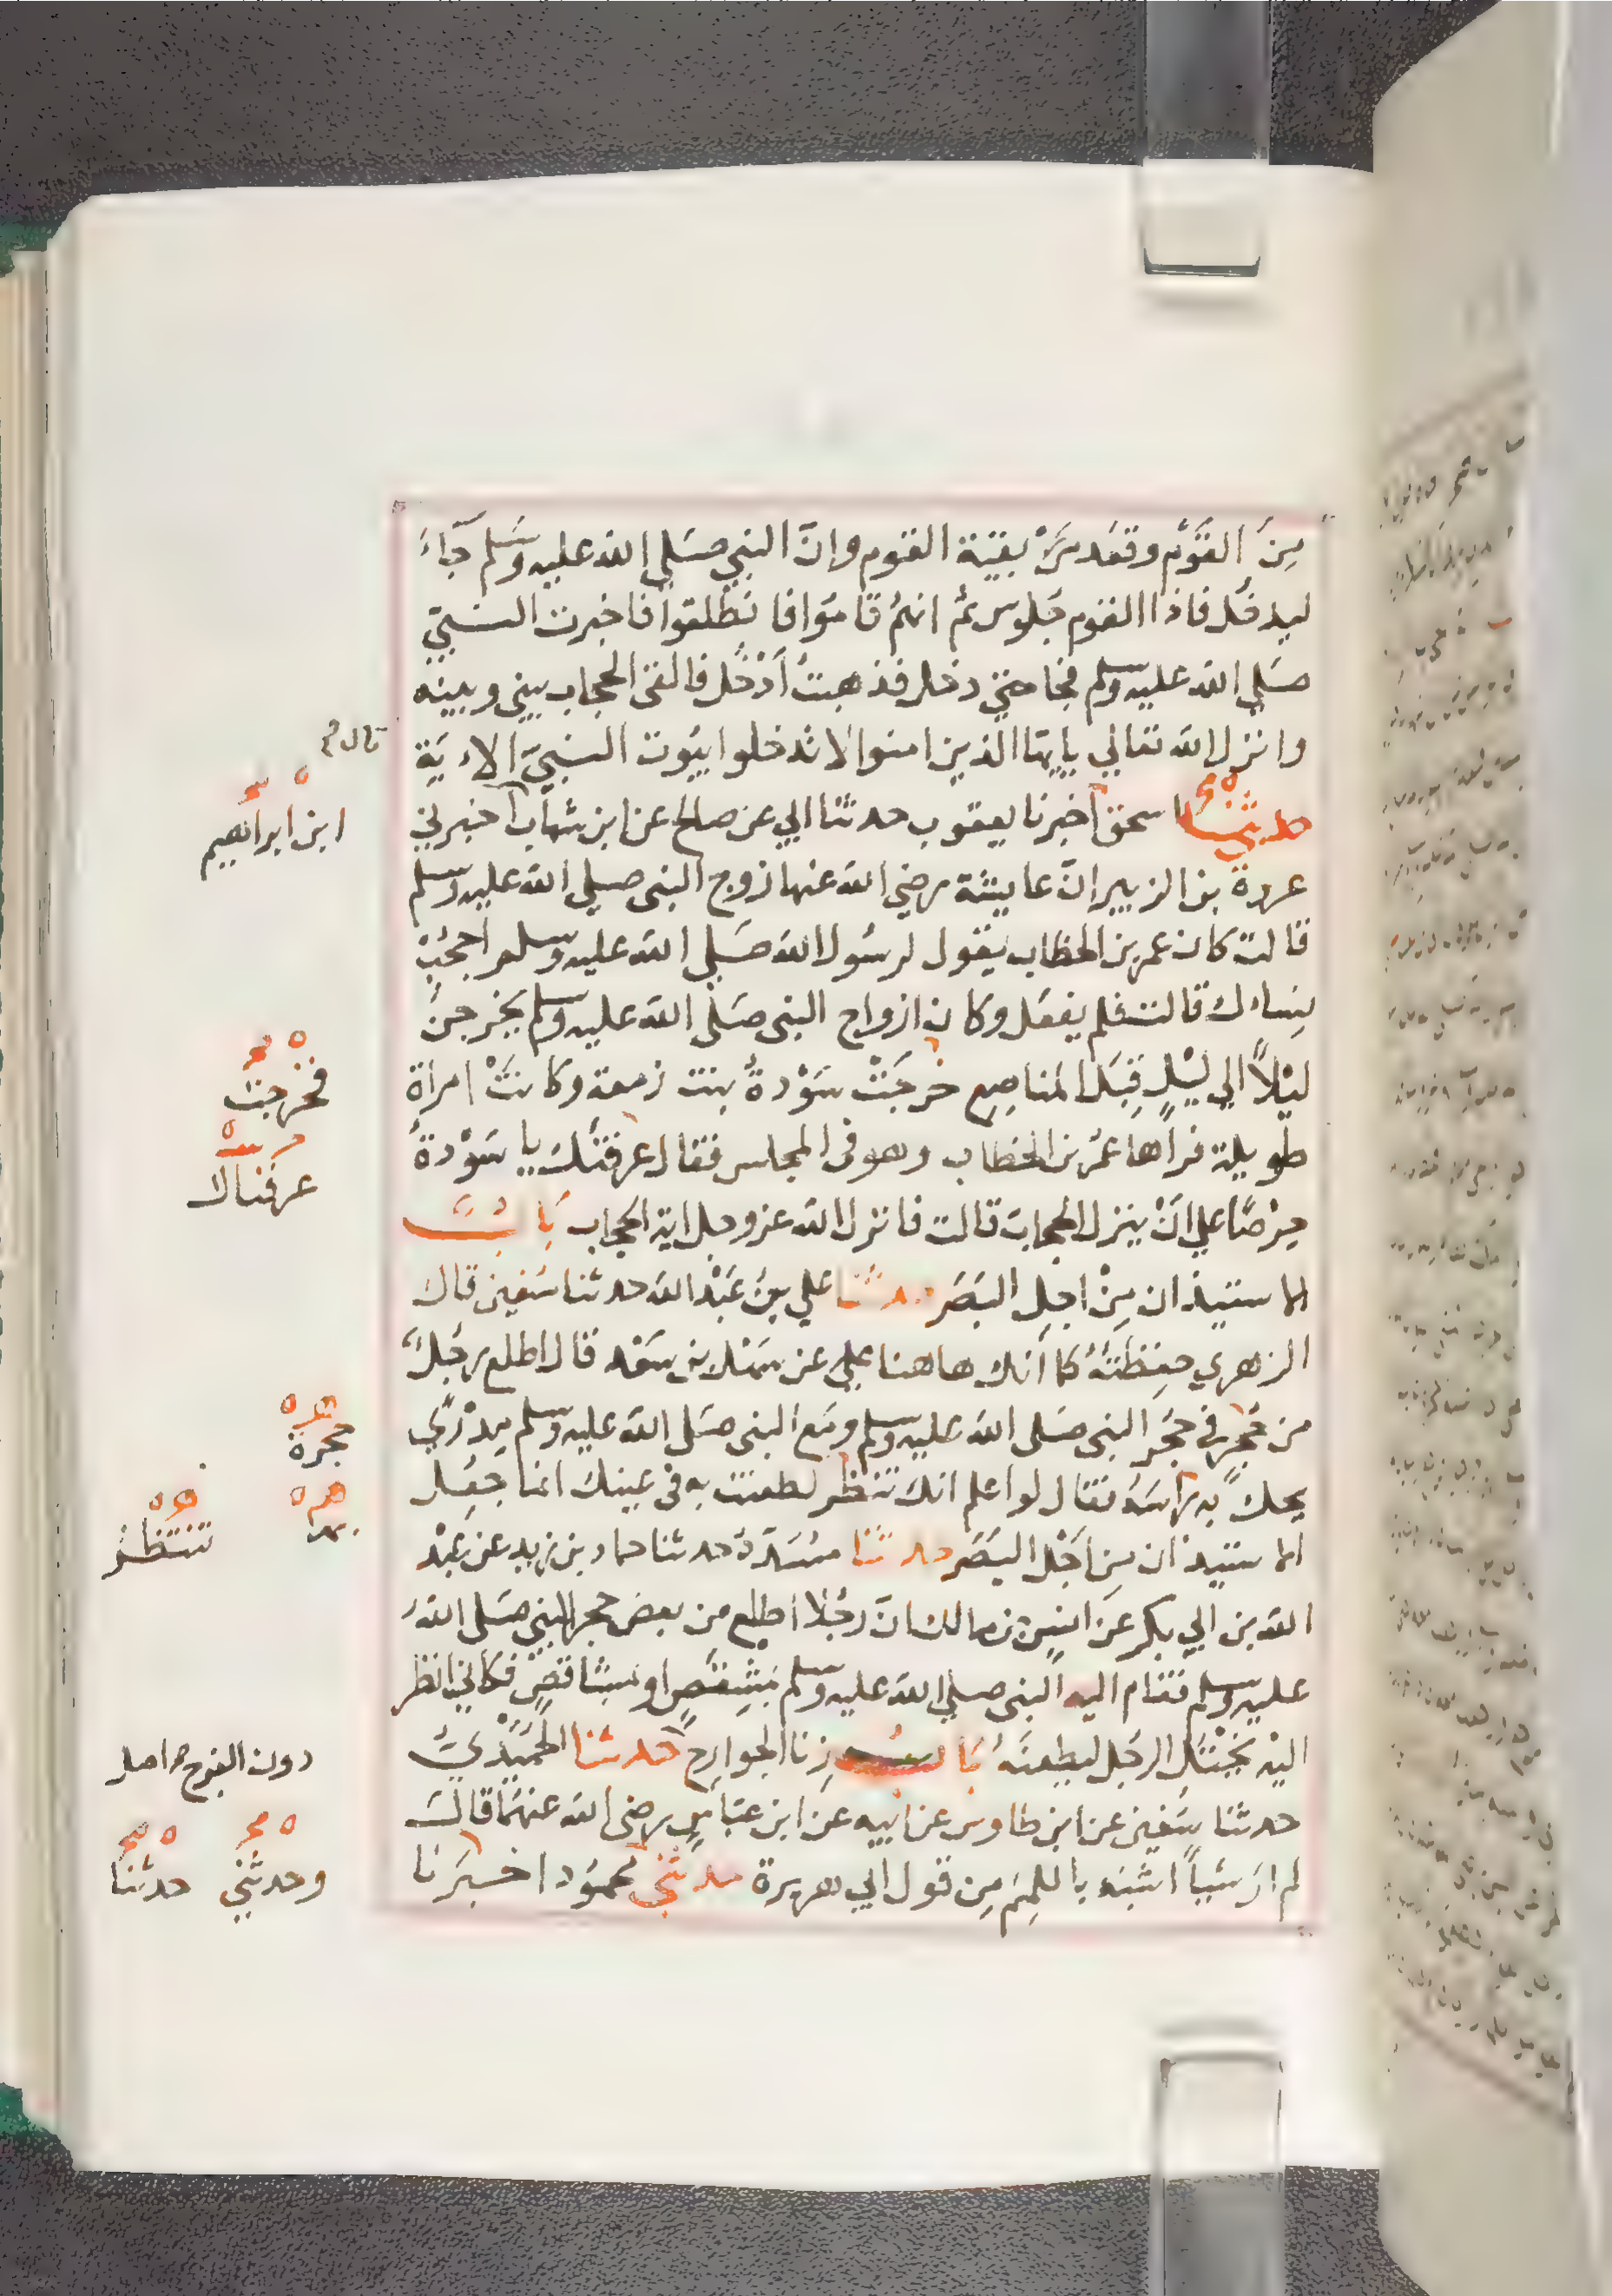 مِنَ القَوْمِ وقعَد بَقيّة القوم وانّ النبي صَلي الله عليه وسَلم جآءَ
ليدخُل فاذا القوم جَلوس ثم انهمُ قامُوا فانطَلقوا فاخبرت النبيّ
صَلي الله عليه وسلم فجا حتي دخل فذهبتُ أدْخُل فالقى الحجاب بيني وبينه
وانزل الله تعالي يايها الذين امنوا لا تدخلوا بيُوت النبيّ الاءيَة
حدثنا اسحق اخبرنا يعقوب حدثنا ابي عن صالح عن ابن شهاب اخبرني
عروة بن الزبير انّ عايشة رضي الله عنها زوج النبي صلي الله عليه وسلم
قالت كان عمر بن الخطاب يقول لرسُول الله صَلي الله عليه وسلم احجُبْ
نِساءك قالت فلم يفعَل وكان ازواج النبي صَلي الله عليه وسلم يخرجنَ
ليْلاً الي ليْلٍ قِبَل المناصِع خرجَتْ سَوْدةُ بنت زمعة وكانتْ امراة
طويلة فراها عمَر بن الخطاب وهو فى المجلس فقال عرفتُكِ يا سَوْدةُ
حِرْصًا علي انْ ينزل الحجاب قالت فانزل الله عز وجل اية الحجاب بَابُ
الاستيذان مِنْ اجل البَصَر حدثنا علي بنُ عَبْد الله حدثنا سُفين قال
الزهري حفِظتهُ كما أنك هاهنا علي عن سَهْل بن سَعْد قال اطلع رجُل
من حُجْر في حُجَر النبي صَلى الله عليه وسلم ومَع النبي صَلى الله عليه وسلم مِدْرًي
يحك به رَاسَهُ فقال لو اعلم انك تنظر لطعنت به في عينك انما جعِل
الاستيذان مِن اَجْل البَصَر حدثنا مسَدّدٌ حدثنا حماد بن زيد عن عبْد
الله بن ابي بكر عَن انسِ بن مالك انّ رجُلا اطلع من بعض حجر النبي صَلى اللهُ
عليه وسلم فقام اليه النبي صلي الله عليه وسلم بمِشقَصٍ او بمشاقصٍ فكاني انظر
اليْه يَخْتِل الرجَل ليطعنَهُ بَابُ زنا الجوارِح حدثنا الحُمَيْدِيُّ
حدثنا سُفين عن ابن طاوس عن ابيه عن ابن عبَاسٍ رضى الله عنهمَا قال
لم ارَ شيْاً اشبَه باللمم مِن قول ابي هريرة حدثني محموُد اخبَرنا
قال
ابن ابراهيم
فخرجت
عرفناك
حجرة
بها
تنتظرُ
دون الفرج اصل
وحدثني حدثنا